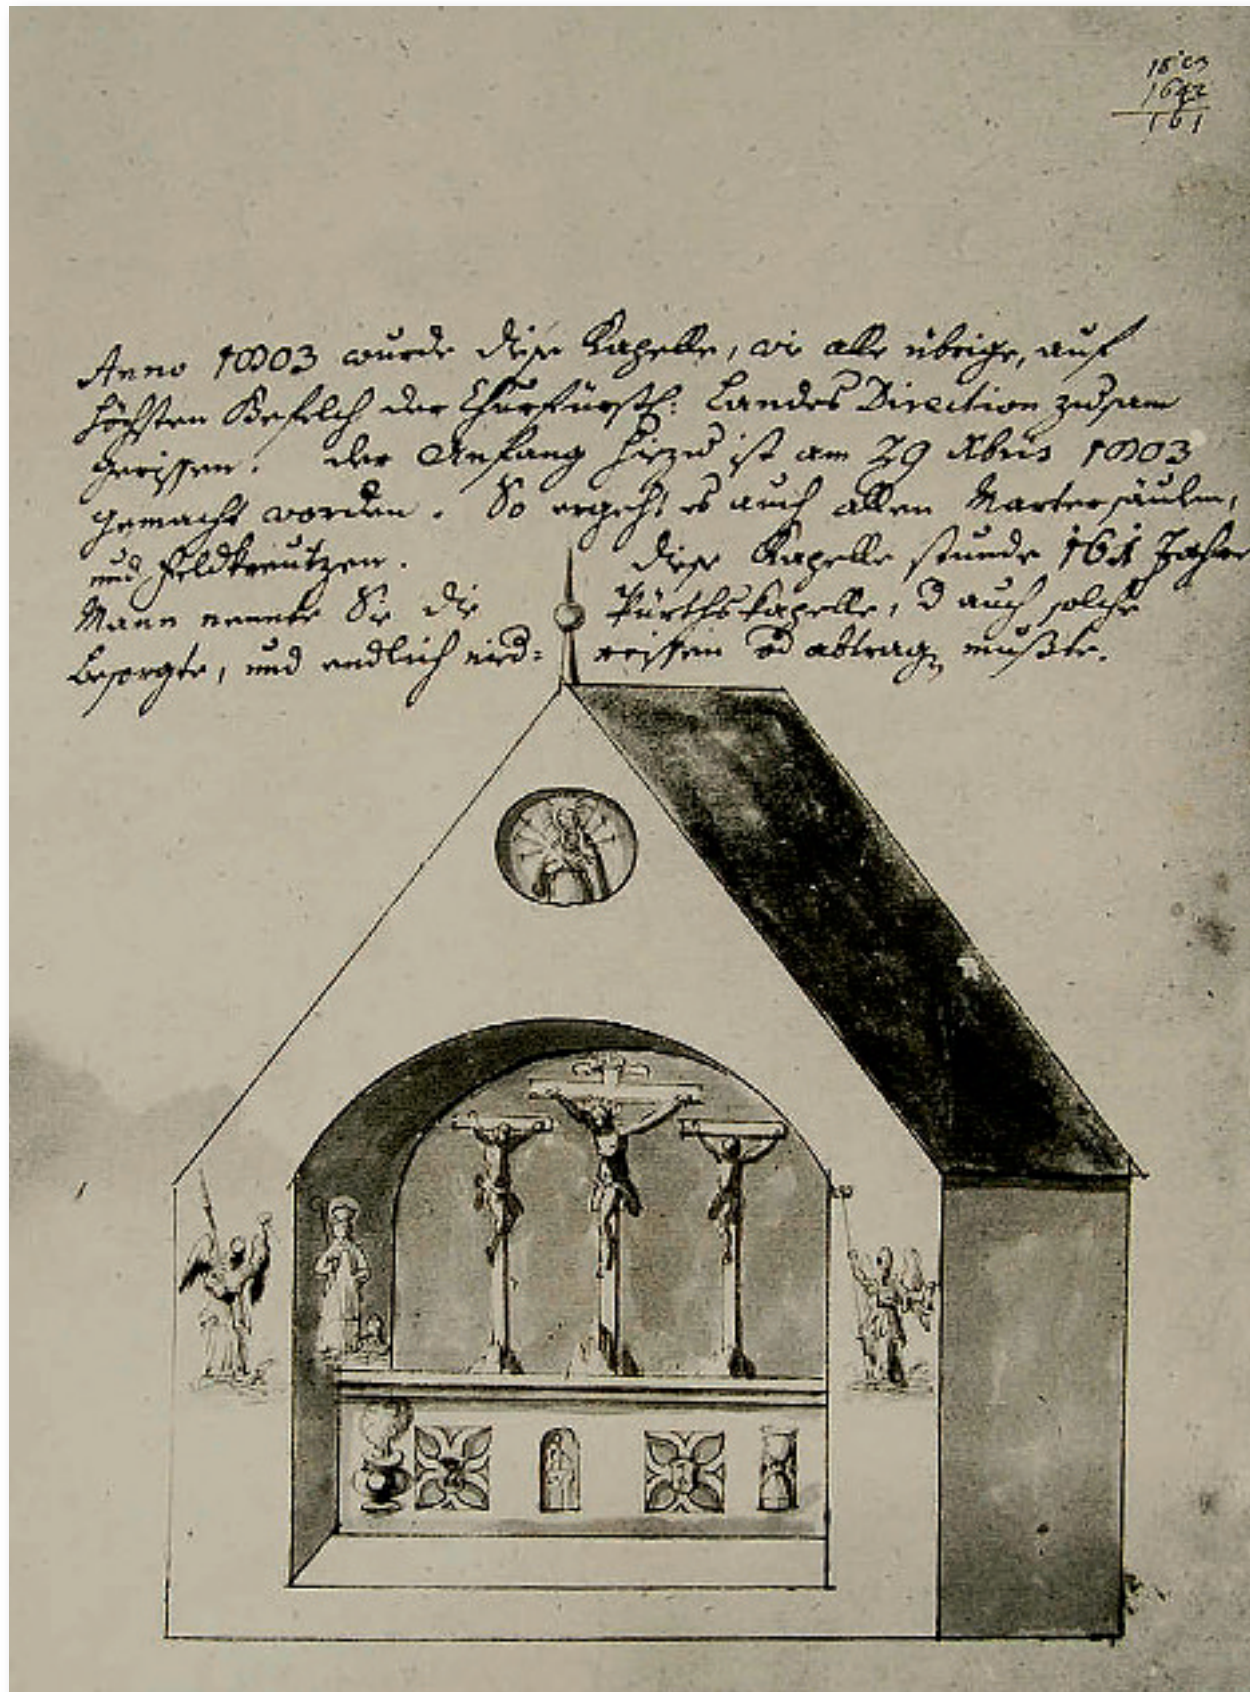 1803
1642
161
Anno 1803 wurde diese Kapelle, wie alle übrige, auf
höchsten Befelch der Churfürstl: Landes Direction zusam
gerissen. der Anfang hiezu ist am 29 Xbris 1803
gemacht worden. So ergeht es auch allen Martersäulen,
und Feldkreutzen. diese Kapelle stunde 161 Jahre
Mann nennte Sie die kapelle, d auch solche
besorgte, und endlich nied= reissen od abtrag mußte.